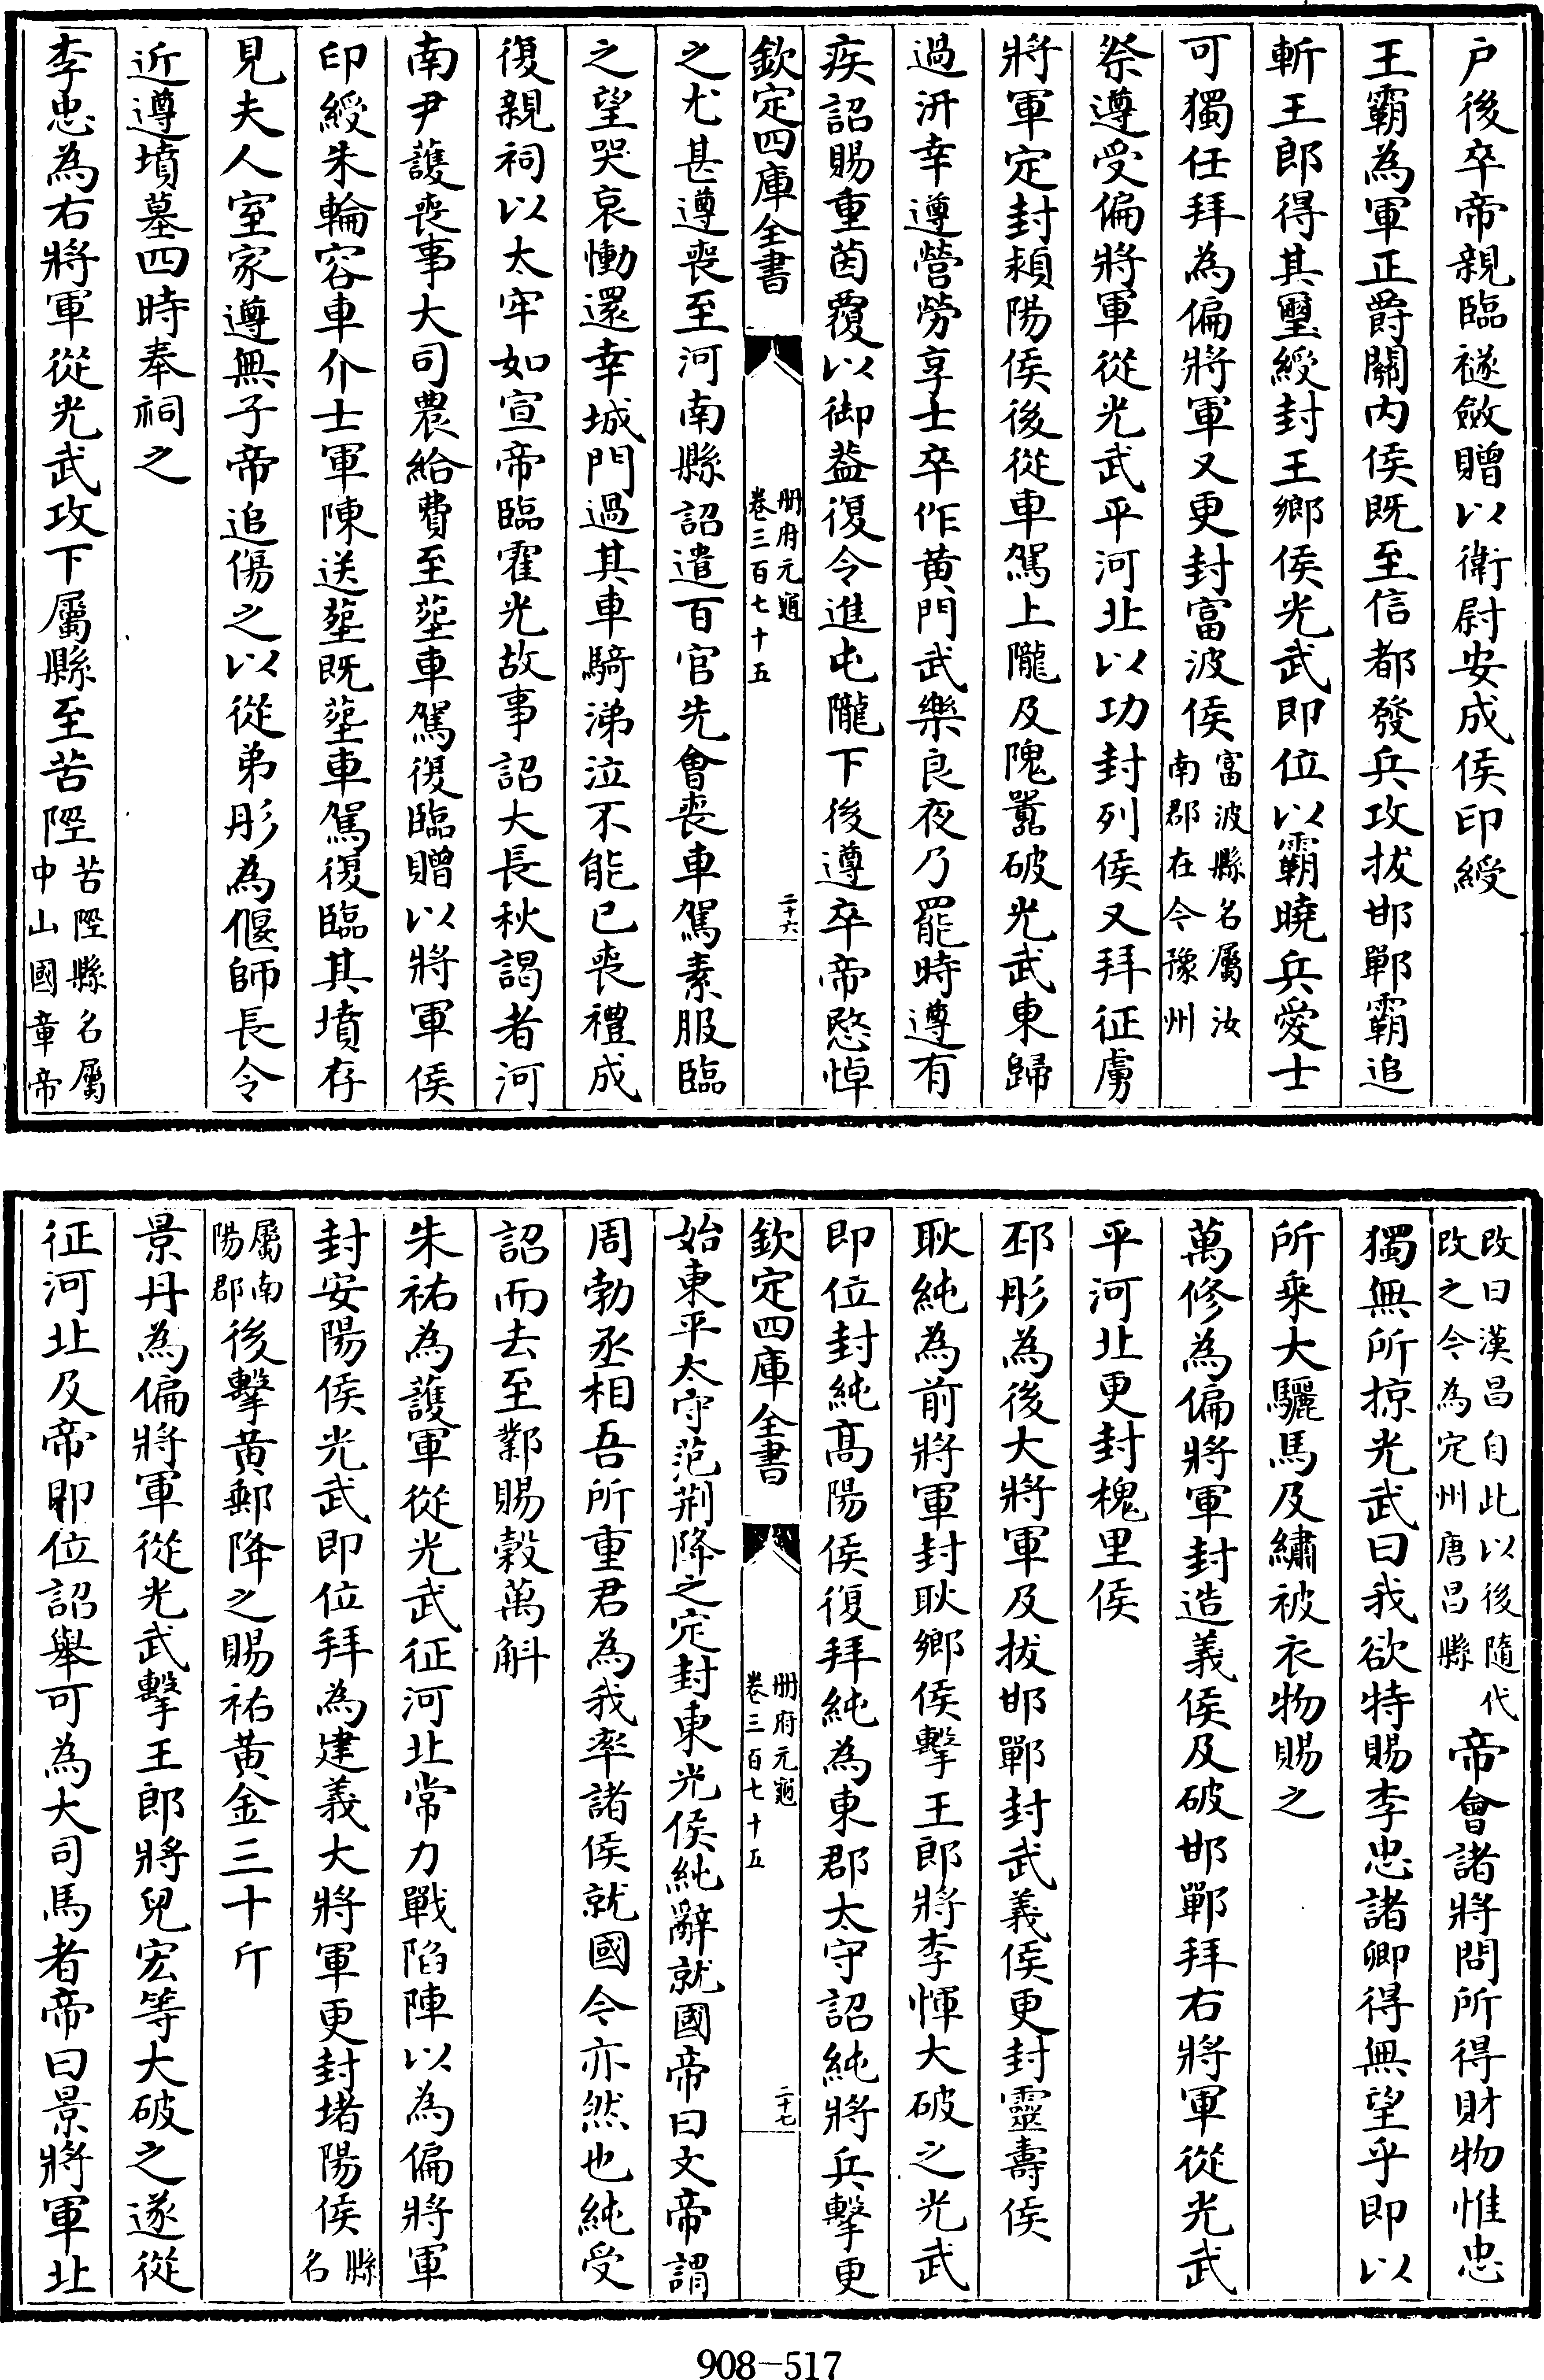 户後卒帝親臨襚斂贈以衛尉安成侯印綬
王霸為軍正爵關内侯既至信都發兵攻拔邯鄲霸追
斬王郎得其璽綬封王鄉侯光武即位以霸曉兵愛士
可獨任拜為偏將軍又更封富波侯富波縣名屬汝南郡在今豫州
祭遵受偏將軍從光武平河北以功封列侯又拜征虜
將軍定封潁陽侯後從車駕上隴及隗囂破光武東歸
過汧幸遵營勞享士卒作黄門武樂良夜乃罷時遵有
疾詔賜重茵覆以御葢復令進屯隴下後遵卒帝愍悼
欽定四庫全書 册府元龜卷三百七十五 二十六
之尤甚遵喪至河南縣詔遣百官先會喪車駕素服臨
之望哭哀慟還幸城門過其車騎涕泣不能已喪禮成
復親祠以太牢如宣帝臨霍光故事詔大長秋謁者河
南尹護喪事大司農給費至塟車駕復臨贈以將軍侯
印綬朱輪容車介士軍陳送塟既塟車駕復臨其墳存
見夫人室家遵無子帝追傷之以從弟彤為偃師長令
近遵墳墓四時奉祠之
李忠為右將軍從光武攻下屬縣至苦陘苦陘縣名屬中山國章帝
改曰漢昌自此以後隨代改之今為定州唐昌縣帝會諸將問所得財物惟忠
獨無所掠光武曰我欲特賜李忠諸卿得無望乎即以
所乘大驪馬及繡被衣物賜之
萬修為偏將軍封造義侯及破邯鄲拜右將軍從光武
平河北更封槐里侯
邳彤為後大將軍及拔邯鄲封武義侯更封靈壽侯
耿純為前將軍封耿鄉侯擊王郎將李惲大破之光武
即位封純髙陽侯復拜純為東郡太守詔純將兵擊更
欽定四庫全書 册府元龜卷三百七十五 二十七
始東平太守范荆降之定封東光侯純辭就國帝曰文帝謂
周勃丞相吾所重君為我率諸侯就國今亦然也純受
詔而去至鄴賜穀萬斛
朱祐為護軍從光武征河北常力戰陷陣以為偏將軍
封安陽侯光武即位拜為建義大將軍更封堵陽侯縣名
屬南陽郡後擊黄郵降之賜祐黄金三十斤
景丹為偏將軍從光武擊王郎將兒宏等大破之遂從
征河北及帝即位詔舉可為大司馬者帝曰景將軍北
908-517